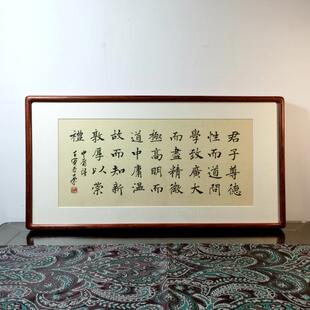 君子尊德
性而道問
學致廣大
而盡精微
極高明而
道中庸溫
故而知新
敦厚以崇
禮
中庸
壬寅